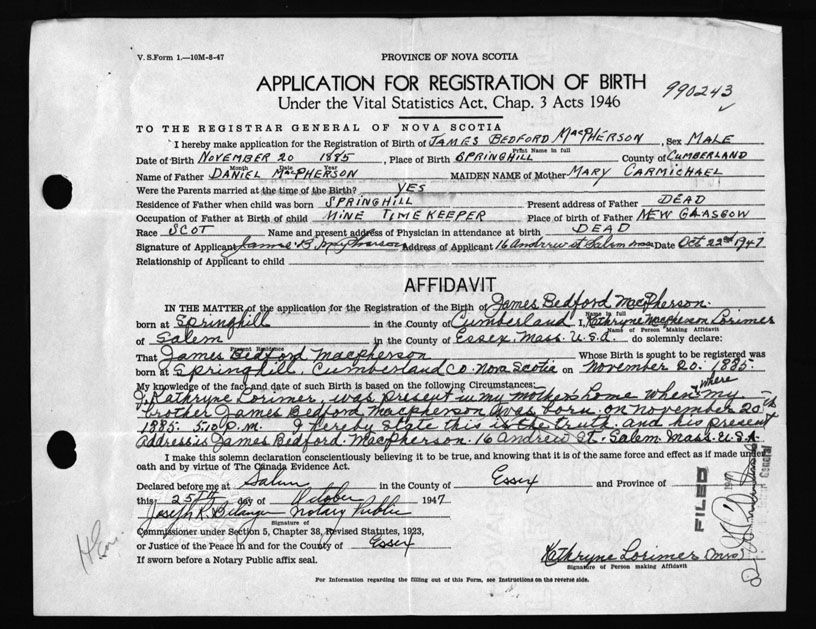 V. S. Form 1.—10M-8-47
PROVINCE OF NOVA SCOTIA
APPLICATION FOR REGISTRATION OF BIRTH
990243
Under the Vital Statistics Act, Chap. 3 Acts 1946
TO THE REGISTRAR GENERAL OF NOVA SCOTIA
I hereby make application for the Registration of Birth of JAMES BEDFORD MacPHERSON, Sex MALE
Print Name in full
Date of Birth NOVEMBER 20 1885, Place of Birth SPRINGHILL County of CUMBERLAND
Month Date Year
Name of Father DANIEL MacPHERSON MAIDEN NAME of Mother MARY CARMICHAEL
Were the Parents married at the time of the Birth? YES
Residence of Father when child was born SPRINGHILL Present address of Father DEAD
Occupation of Father at Birth of child MINE TIMEKEEPER Place of birth of Father NEW GLASGOW
Race SCOT Name and present address of Physician in attendance at birth DEAD
Signature of Applicant James B. MacPherson Address of Applicant 16 Andrew St Salem Mass Date Oct 22nd 1947
Relationship of Applicant to child
AFFIDAVIT
IN THE MATTER of the application for the Registration of the Birth of James Bedford MacPherson.
Name in full
born at Springhill in the County of Cumberland I, Kathryne Macpherson Lorimer
Name of Person Making Affidavit
of Salem in the County of Essex, Mass. U.S.A. do solemnly declare:
Present Residence
That James Bedford Macpherson Whose Birth is sought to be registered was
born at Springhill, Cumberland Co. Nova Scotia on November 20. 1885.
My knowledge of the fact and date of such Birth is based on the following Circumstances:
I, Kathryne Lorimer, was present in my mothers home when where my
brother James Bedford Macpherson was born. on November 20th
1885. 510 P.M. I hereby state this is the truth. and his present
address is James Bedford. Macpherson. 16 Andrew St. Salem Mass. U.S.A.
I make this solemn declaration conscientiously believing it to be true, and knowing that it is of the same force and effect as if made under
oath and by virtue of The Canada Evidence Act.
Declared before me at Salem in the County of Essex and Province of
this 25th day of October 1947
Joseph R. Notary Public
Signature of
Commissioner under Section 5, Chapter 38, Revised Statutes, 1923,
or Justice of the Peace in and for the County of Essex
If sworn before a Notary Public affix seal.
Kathryne Lorimer (Mrs)
Signature of Person making Affidavit
For Information regarding the filling out of this Form, see Instructions on the reverse side.
FILED
General